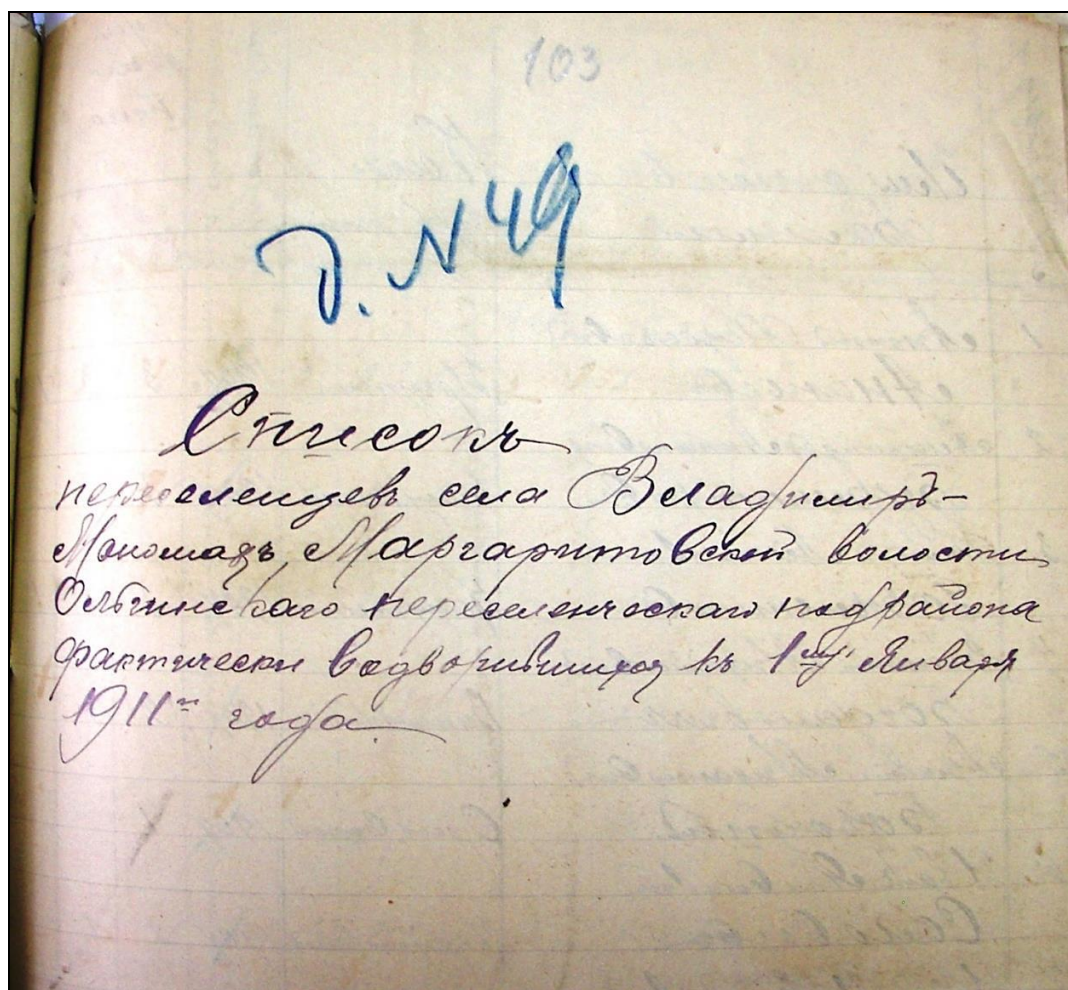 103
д. N 49
Списокъ
переселенцевъ села Владимиръ-
Мономахъ, Маргаритовской волости
Ольгинскаго переселенческаго подрайона
фактически водворившихся къ 1му Января
1911го года